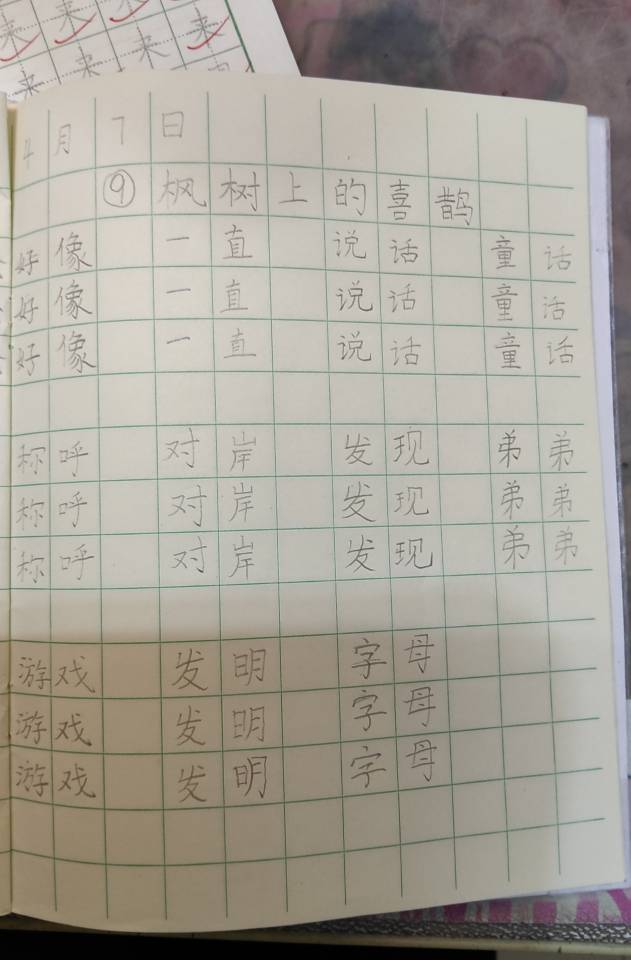 来 来 来 来
来 来 来
4月7日
⑨枫树上的喜鹊
好像 一直 说话 童话
好像 一直 说话 童话
好像 一直 说话 童话
称呼 对岸 发现 弟弟
称呼 对岸 发现 弟弟
称呼 对岸 发现 弟弟
游戏 发明 字母
游戏 发明 字母
游戏 发明 字母